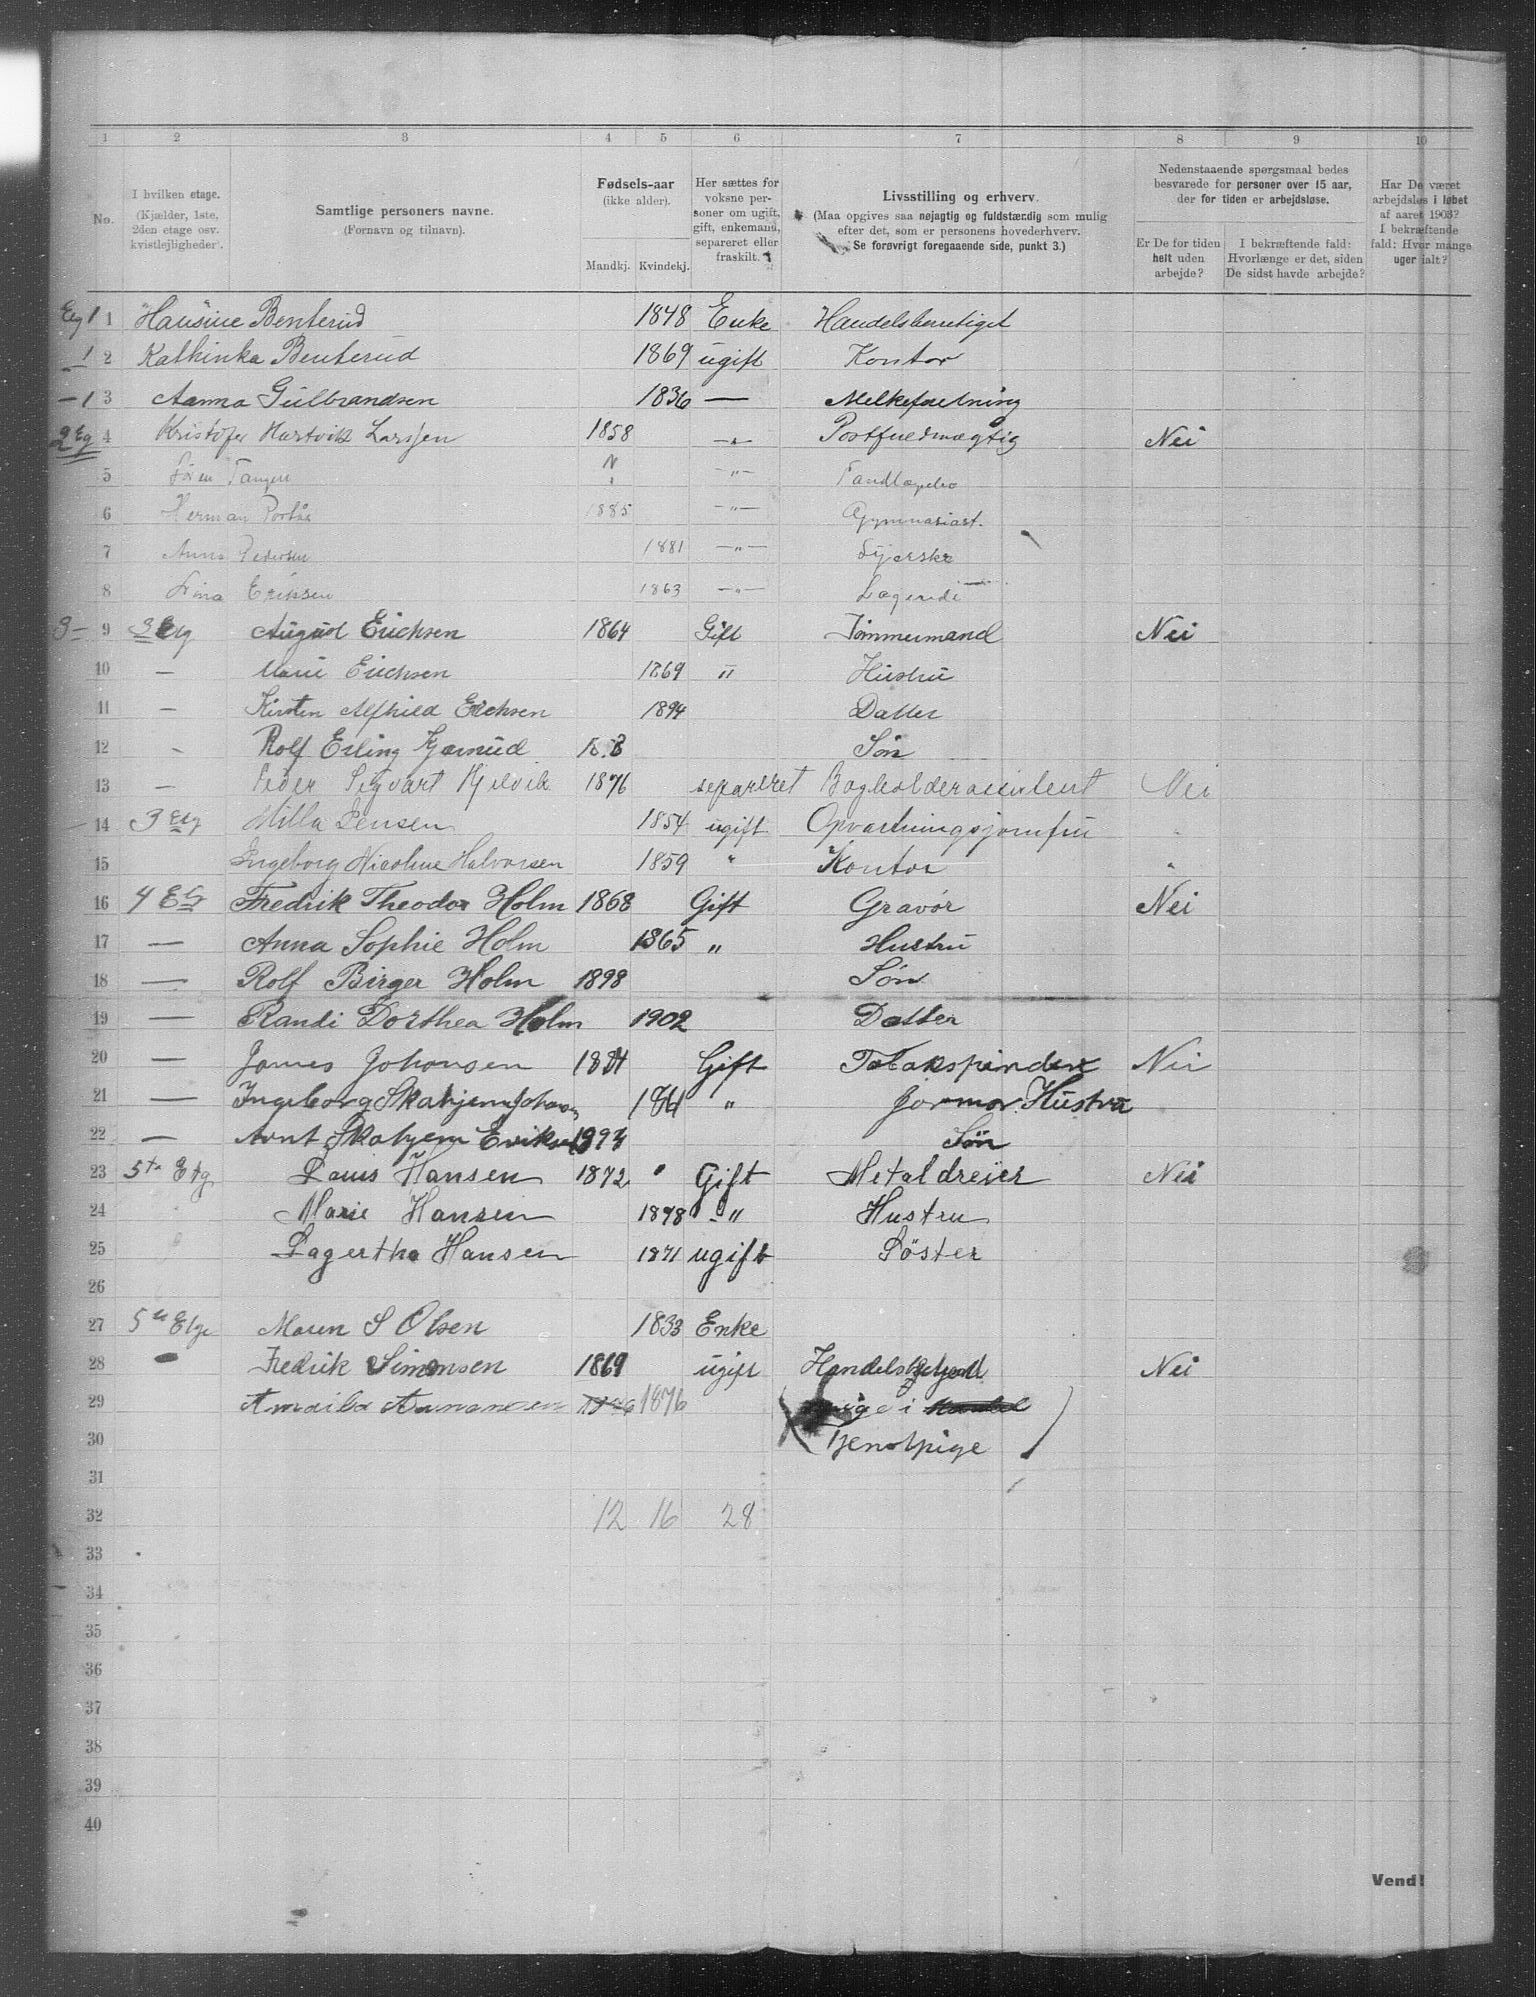 1 2 3 4 5 6 7 8 9 10
No.
I hvilken etage.
(Kjælder, 1ste,
2den etage osv.
kvistlejligheder).
Samtlige personers navne.
(Fornavn og tilnavn).
Fødsels-aar
(ikke alder).
Mandkj. Kvindekj.
Her sættes for
voksne per-
soner om ugift,
gift, enkemand,
separeret eller
fraskilt.
Livsstilling og erhverv.
(Maa opgives saa nøjagtig og fuldstændig som mulig
efter det, som er personens hovederhverv.
Se forøvrigt foregaaende side, punkt 3.)
Nedenstaaende spørgsmaal bedes
besvarede for personer over 15 aar,
der for tiden er arbejdsløse.
Er De for tiden
helt uden
arbejde?
I bekræftende fald:
Hvorlænge er det, siden
De sidst havde arbejde?
Har De været
arbejdsløs i løbet
af aaret 1903?
I bekræftende
fald: Hvor mange
uger ialt?
Etg 1 1 Hansine Benterud 1848 Enke Handelsberettiget
— 1 2 Kathinka Benterud 1869 ugift Kontor
— 1 3 Aanna Gulbrandsen 1836 — Melkeforetning
2 Eg 4 Kristofer Hartvik Larssen 1858 —"— Postfuldmægtig Nei
5 Søren —"— Tandlæge
6 Herman 1885 —"— Gymnasiast.
7 Anna Pedersen 1881 —"— Syerske
8 Eriksen 1863 —"—
3 — 9 3 Etg August Erichsen 1864 Gift Tømmermand Nei
10 — Marie Erichsen 1869 " Hustru
11 — Kirsten Alfhild Erichsen 1894 Datter
12 - Rolf Erling Søn
13 — Peder Sigvart 1876 separeret Bogholderassistent Nei
14 3 Etg Milla Jensen 1854 ugift Opvartningsjomfru "
15 Ingeborg Nicoline Halvorsen 1859 " Kontor "
16 4 Etg Fredrik Theodor Holm 1868 Gift Gravør Nei
17 — Anna Sophie Holm 1865 " Hustru
18 — Rolf Birger Holm 1898 Søn
19 — Randi Dorthea Holm 1902 Datter
20 — James Johansen Gift Tobakspinder Nei
21 — Ingeborg Skahjem Johansen 1861 " Jormor. Hustru
22 — Arnt Skahjem Eriksen 1893 Søn
23 5te Etg Lauis Hansen 1872 " Gift Metaldreier Nei
24 Marie Hansen 1878 -" Hustru
25 Lagertha Hansen 1871 ugift Söster
26
27 5te Etge Maren S Olsen 1833 Enke
28 Fredrik Simonsen 1869 ugift Handelsbetjent Nei
29 1876 i
30 Tjenestpige
31
32 12 16 28
33
34
35
36
37
38
39
40
Vend!